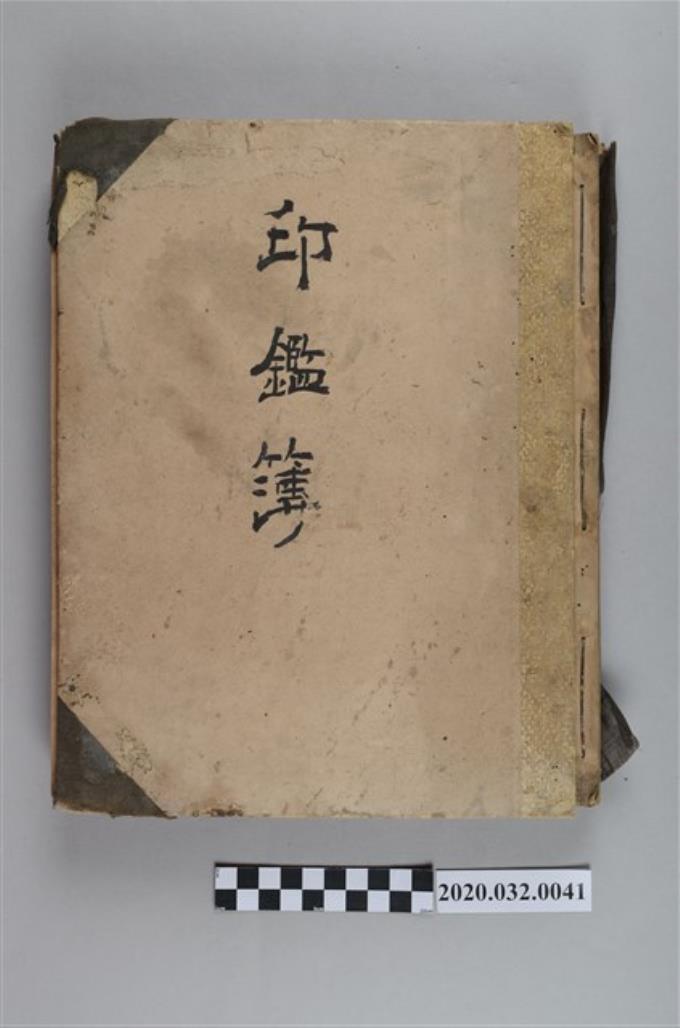 印鑑簿
2020.032.0041